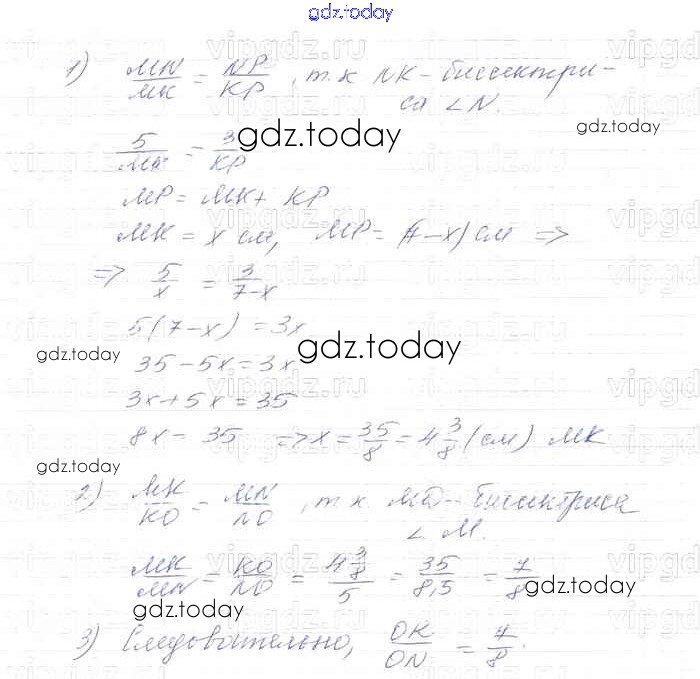 gdz.today
1) MN/MK = NP/KP, т.к NK - биссектри-
са ∠N.
gdz.today
5/MK = 3/KP
gdz.today
MP = MK + KP
MK = x см, MP = (7-x) см ⇒
⇒ 5/x = 3/(7-x)
5(7-x) = 3x
gdz.today
35 - 5x = 3x
gdz.today
3x + 5x = 35
8x = 35 ⇒ x = 35/8 = 4 3/8 (см) MK
gdz.today
2) MK/KO = MN/NO, т.к. MO - биссектриса
∠M.
MK/MN = KO/NO = 4 3/8 / 5 = 35/8,5 = 7/8
gdz.today
gdz.today
3) Следовательно, OK/ON = 7/8.